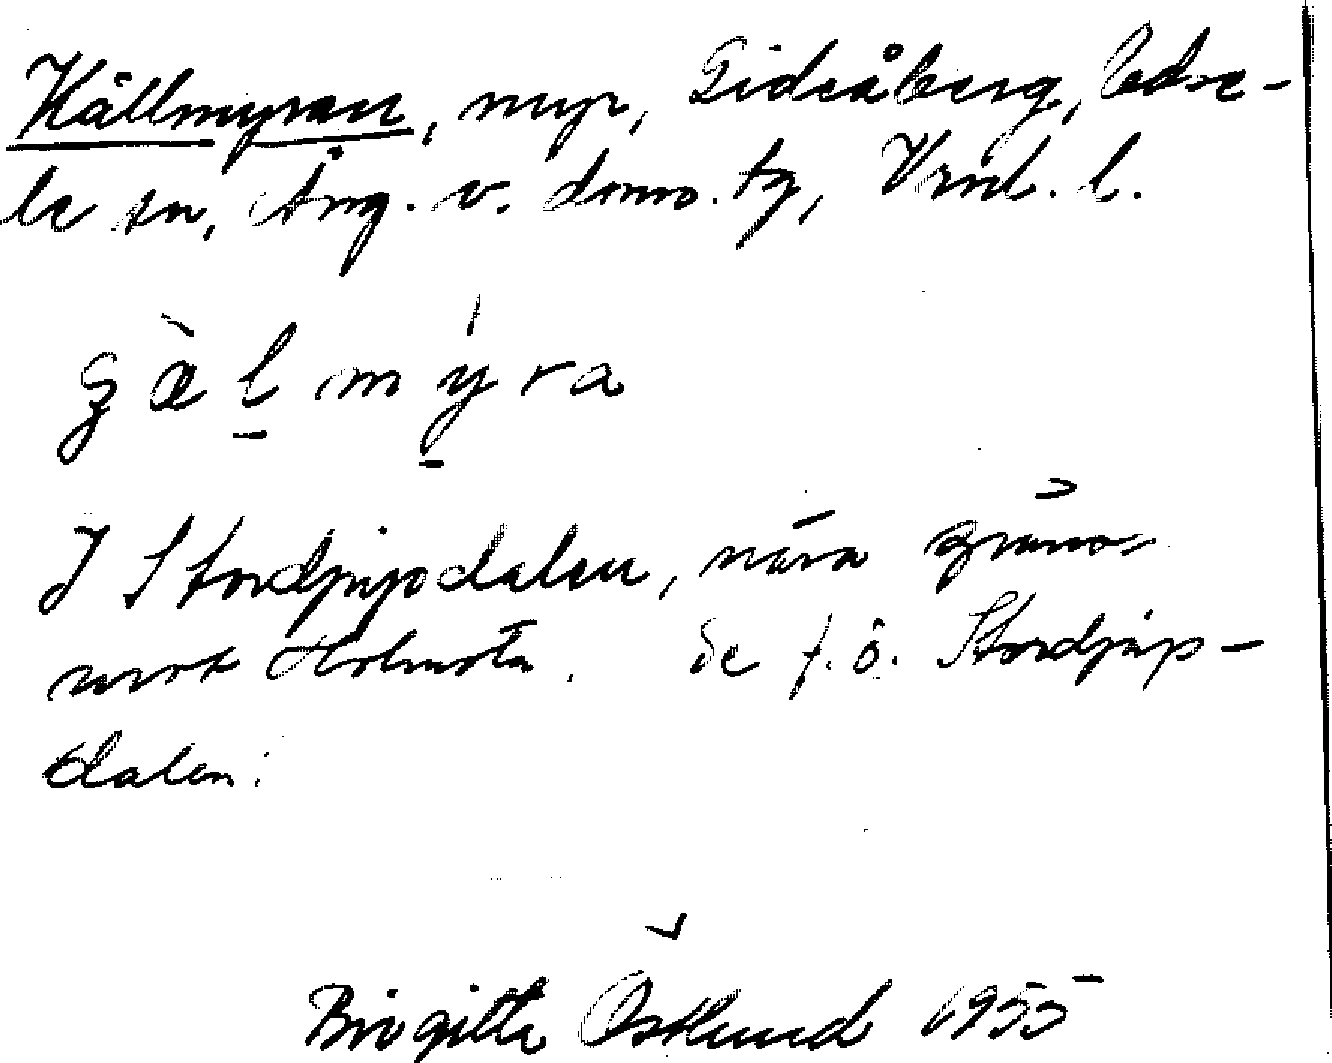 Källmyran, myr, Gideåberg, Edse-
le sn, Ång. v. doms. tg, Vrnl. l.
gæ̀l̠mýra
I Stordjupdalen, nära gräns
mot Holmsta. Se f. ö. Stordjup-
dalen.
Birgitta Östlund 1955